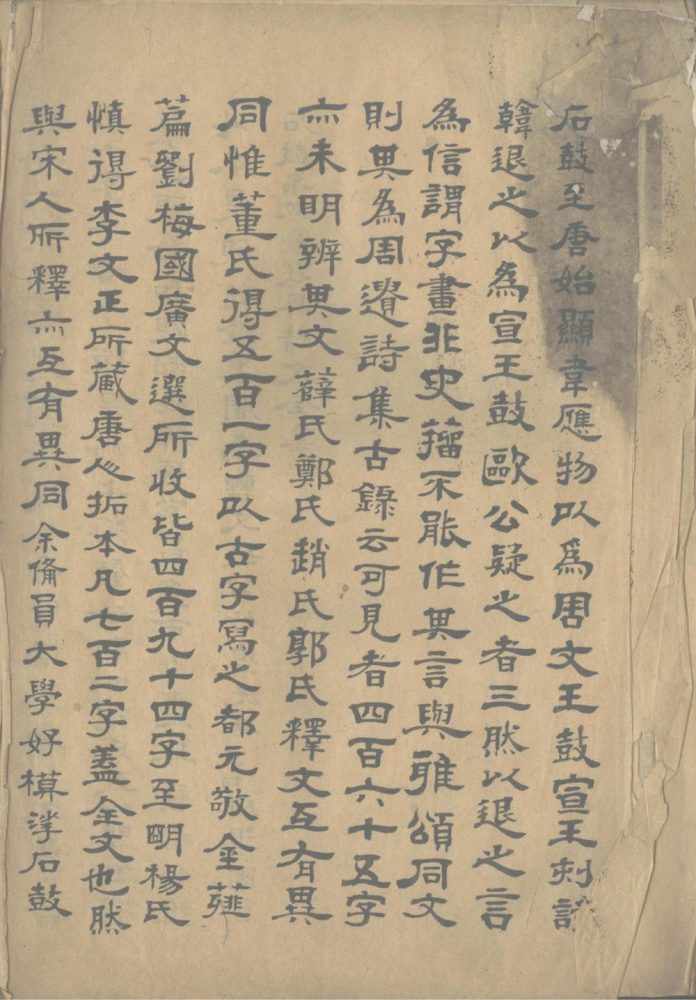 石鼓至唐始顯韋應物以爲周文王鼓宣王刻詩
韓退之以為宣王鼓歐公疑之者三然以退之言
為信謂字畫非史籀不能作其言與雅頌同文
則其為周遺詩集古錄云可見者四百六十五字
亦未明辨其文薛氏鄭氏趙氏郭氏釋文互有異
同惟董氏得五百一字以古字寫之都元敬金薤
篇劉梅國廣文選所收皆四百九十四字至明楊氏
慎得李文正所藏唐人拓本凡七百二字蓋全文也然
與宋人所釋亦互有異同余備員大學好模揅石鼓